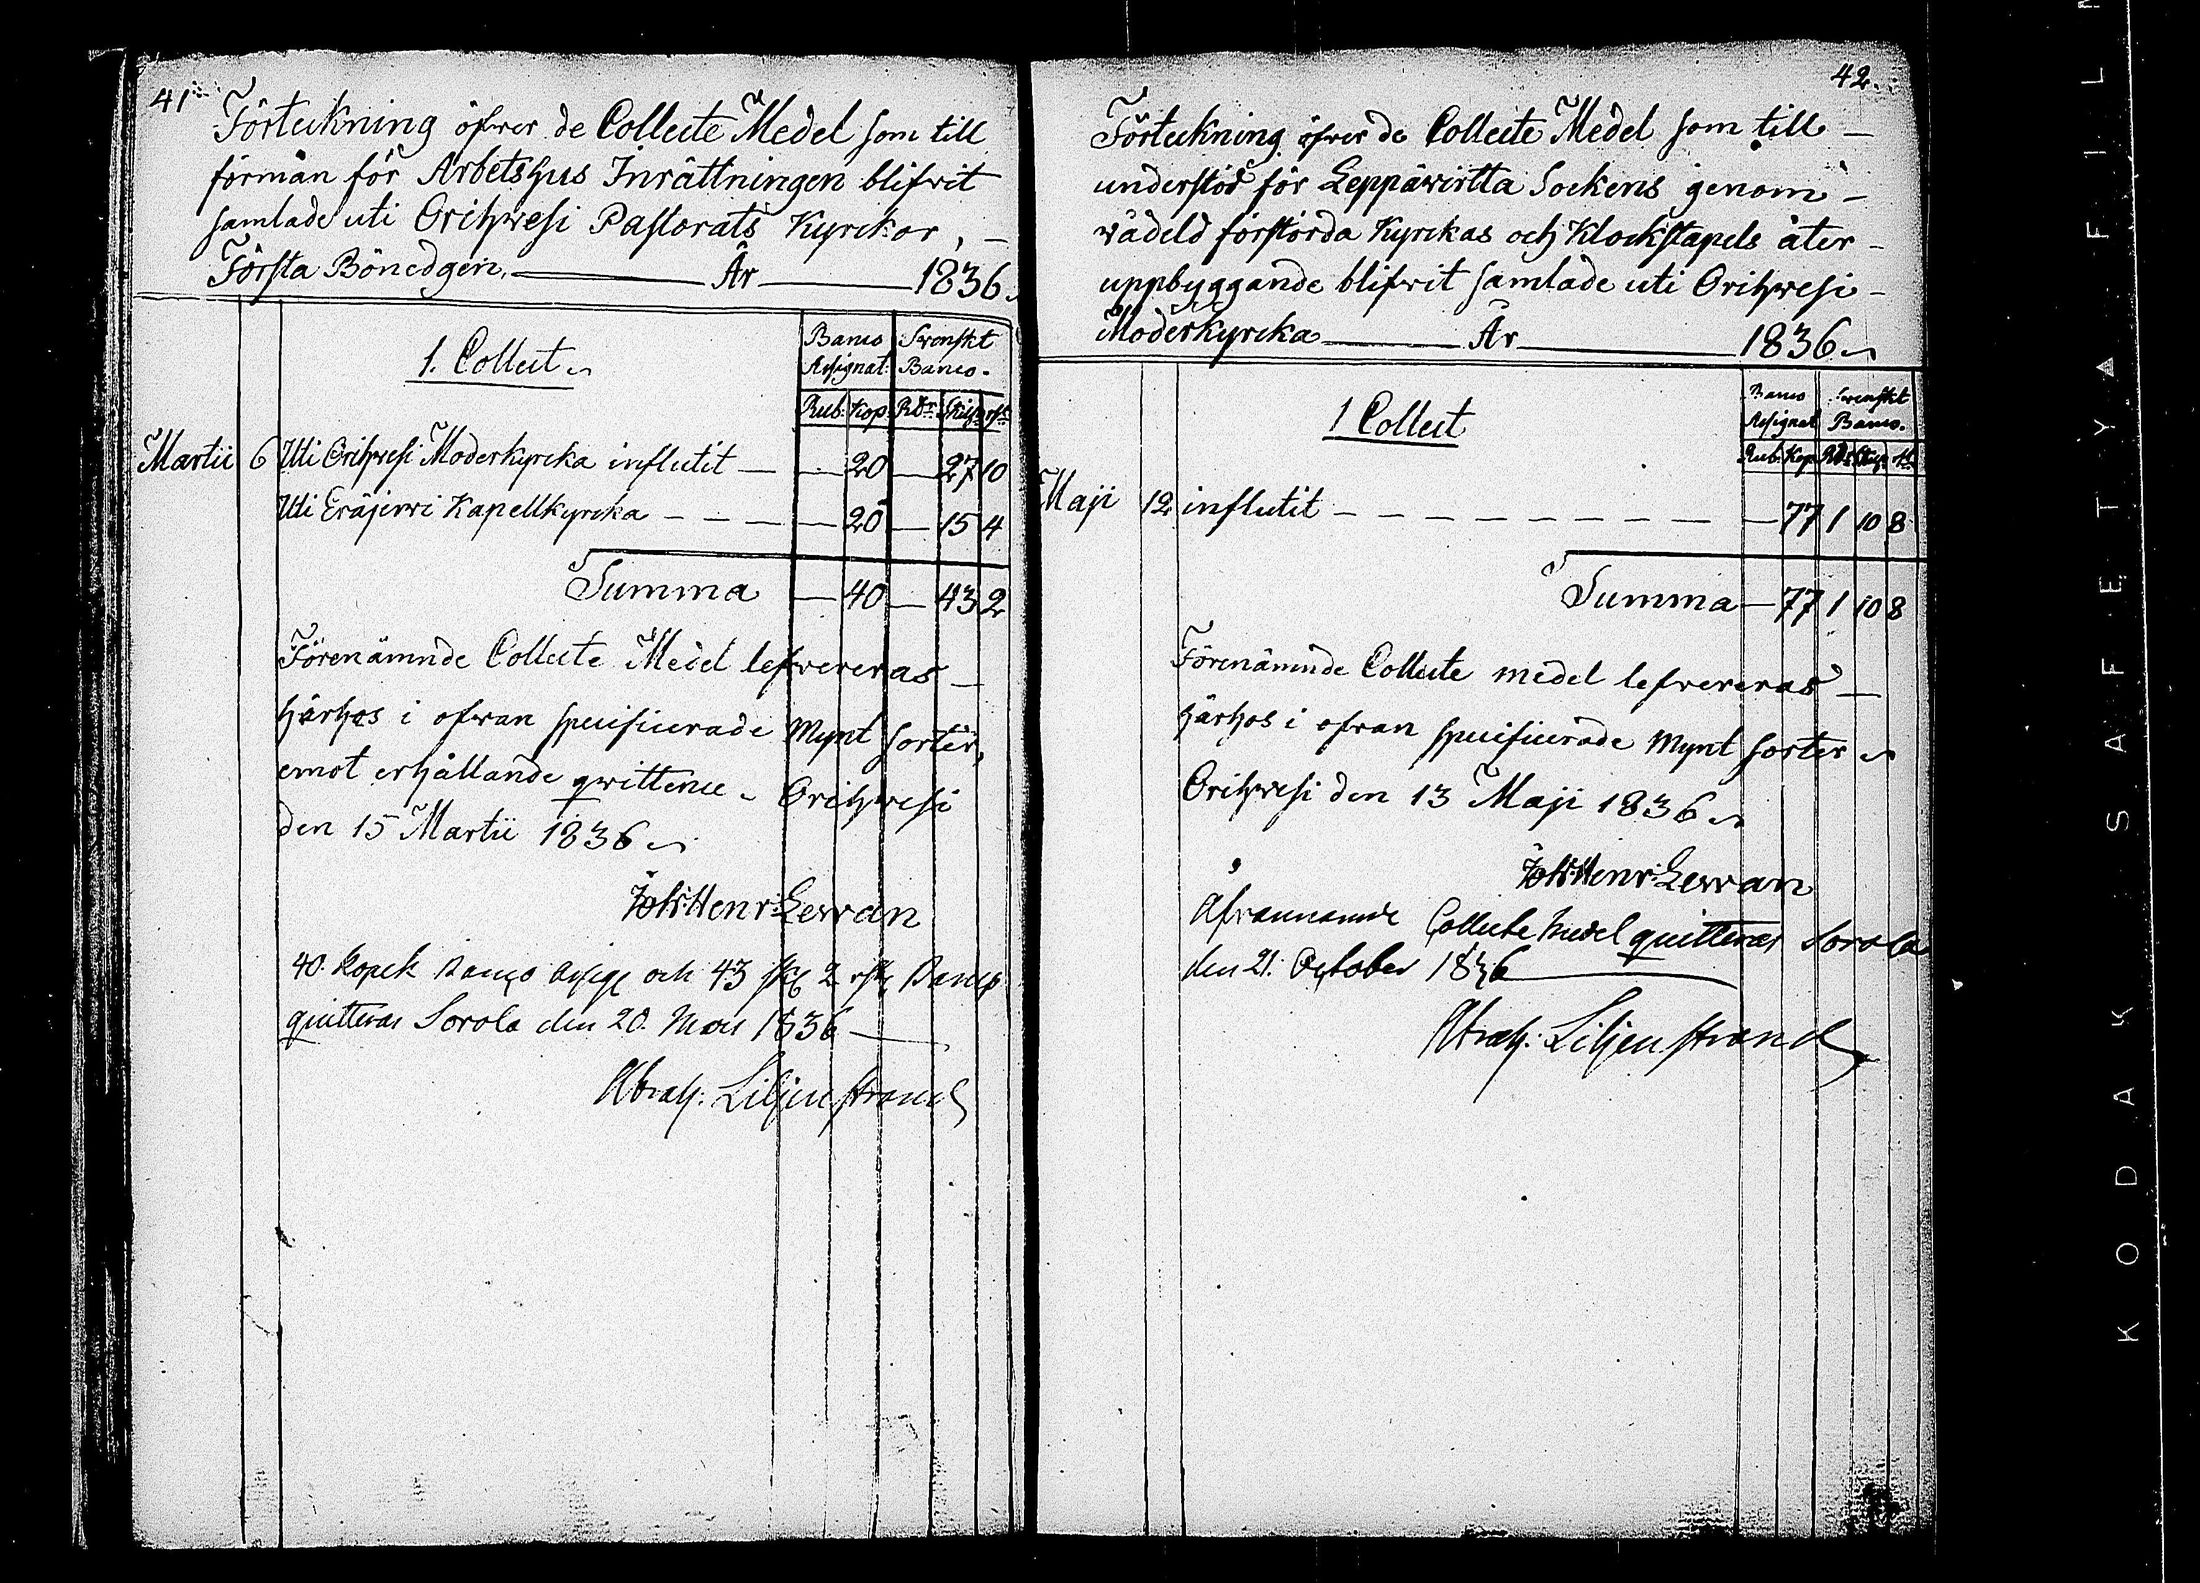 41
Förteckning öfver de Collecte Medel som till
förmån för Arbetshus Inrättningen blifvit
samlade uti Orihwesi Pastorats Kyrckor, —
Första Bönedgen, — År — 1836.
1. Collect
Banco Assignat: Svenskt Banco.
Rub: Kop: Rdr: Skill: rst:
Martii 6 Uti Orihwesi Moderkyrcka influtit — — 20 — 27 10
Uti Eräjerwi Kapellkyrcka — — — — 20 — 15 4
Summa — 40 — 43 2
Förenämnde Collecte Medel lefvereras —
härhos i ofvan specificerade Mynt sorter,
emot erhållande qvittence. Orihwesi
den 15 Martii 1836
Joh: Henr: Levvan
40 kopek Banco assign och 43 sk 2 rst Banco
quitteras Sorola den 20. Mars 1836
Abrah: Liljenstrand
42.
Förteckning öfver de Collecte Medel som till —
understöd för Leppäwirtta Sockens genom —
vådeld förstörda Kyrckas och Klockstapels åter -
uppbyggande blifvit samlade uti Orihwesi -
Moderkyrcka — År — 1836
1 Collect
Banco Assignat Svenskt Banco.
Rub: Kop: Rdr Skill: rst
Maji 12 influtit — — — — — — — — — — 77 1 10 8
Summa — 77 1 10 8
Förenämnde Collecte medel lefvereras —
härhos i ofvan specificerade Mynt sorter
Orihwesi den 13 Maji 1836
Joh: Henr: Levvan
Åfvannämnde Collecte Medel quitteras Sorola
den 21. October 1836
Abrah: Liljenstrand
KODAK SAFETY FILM